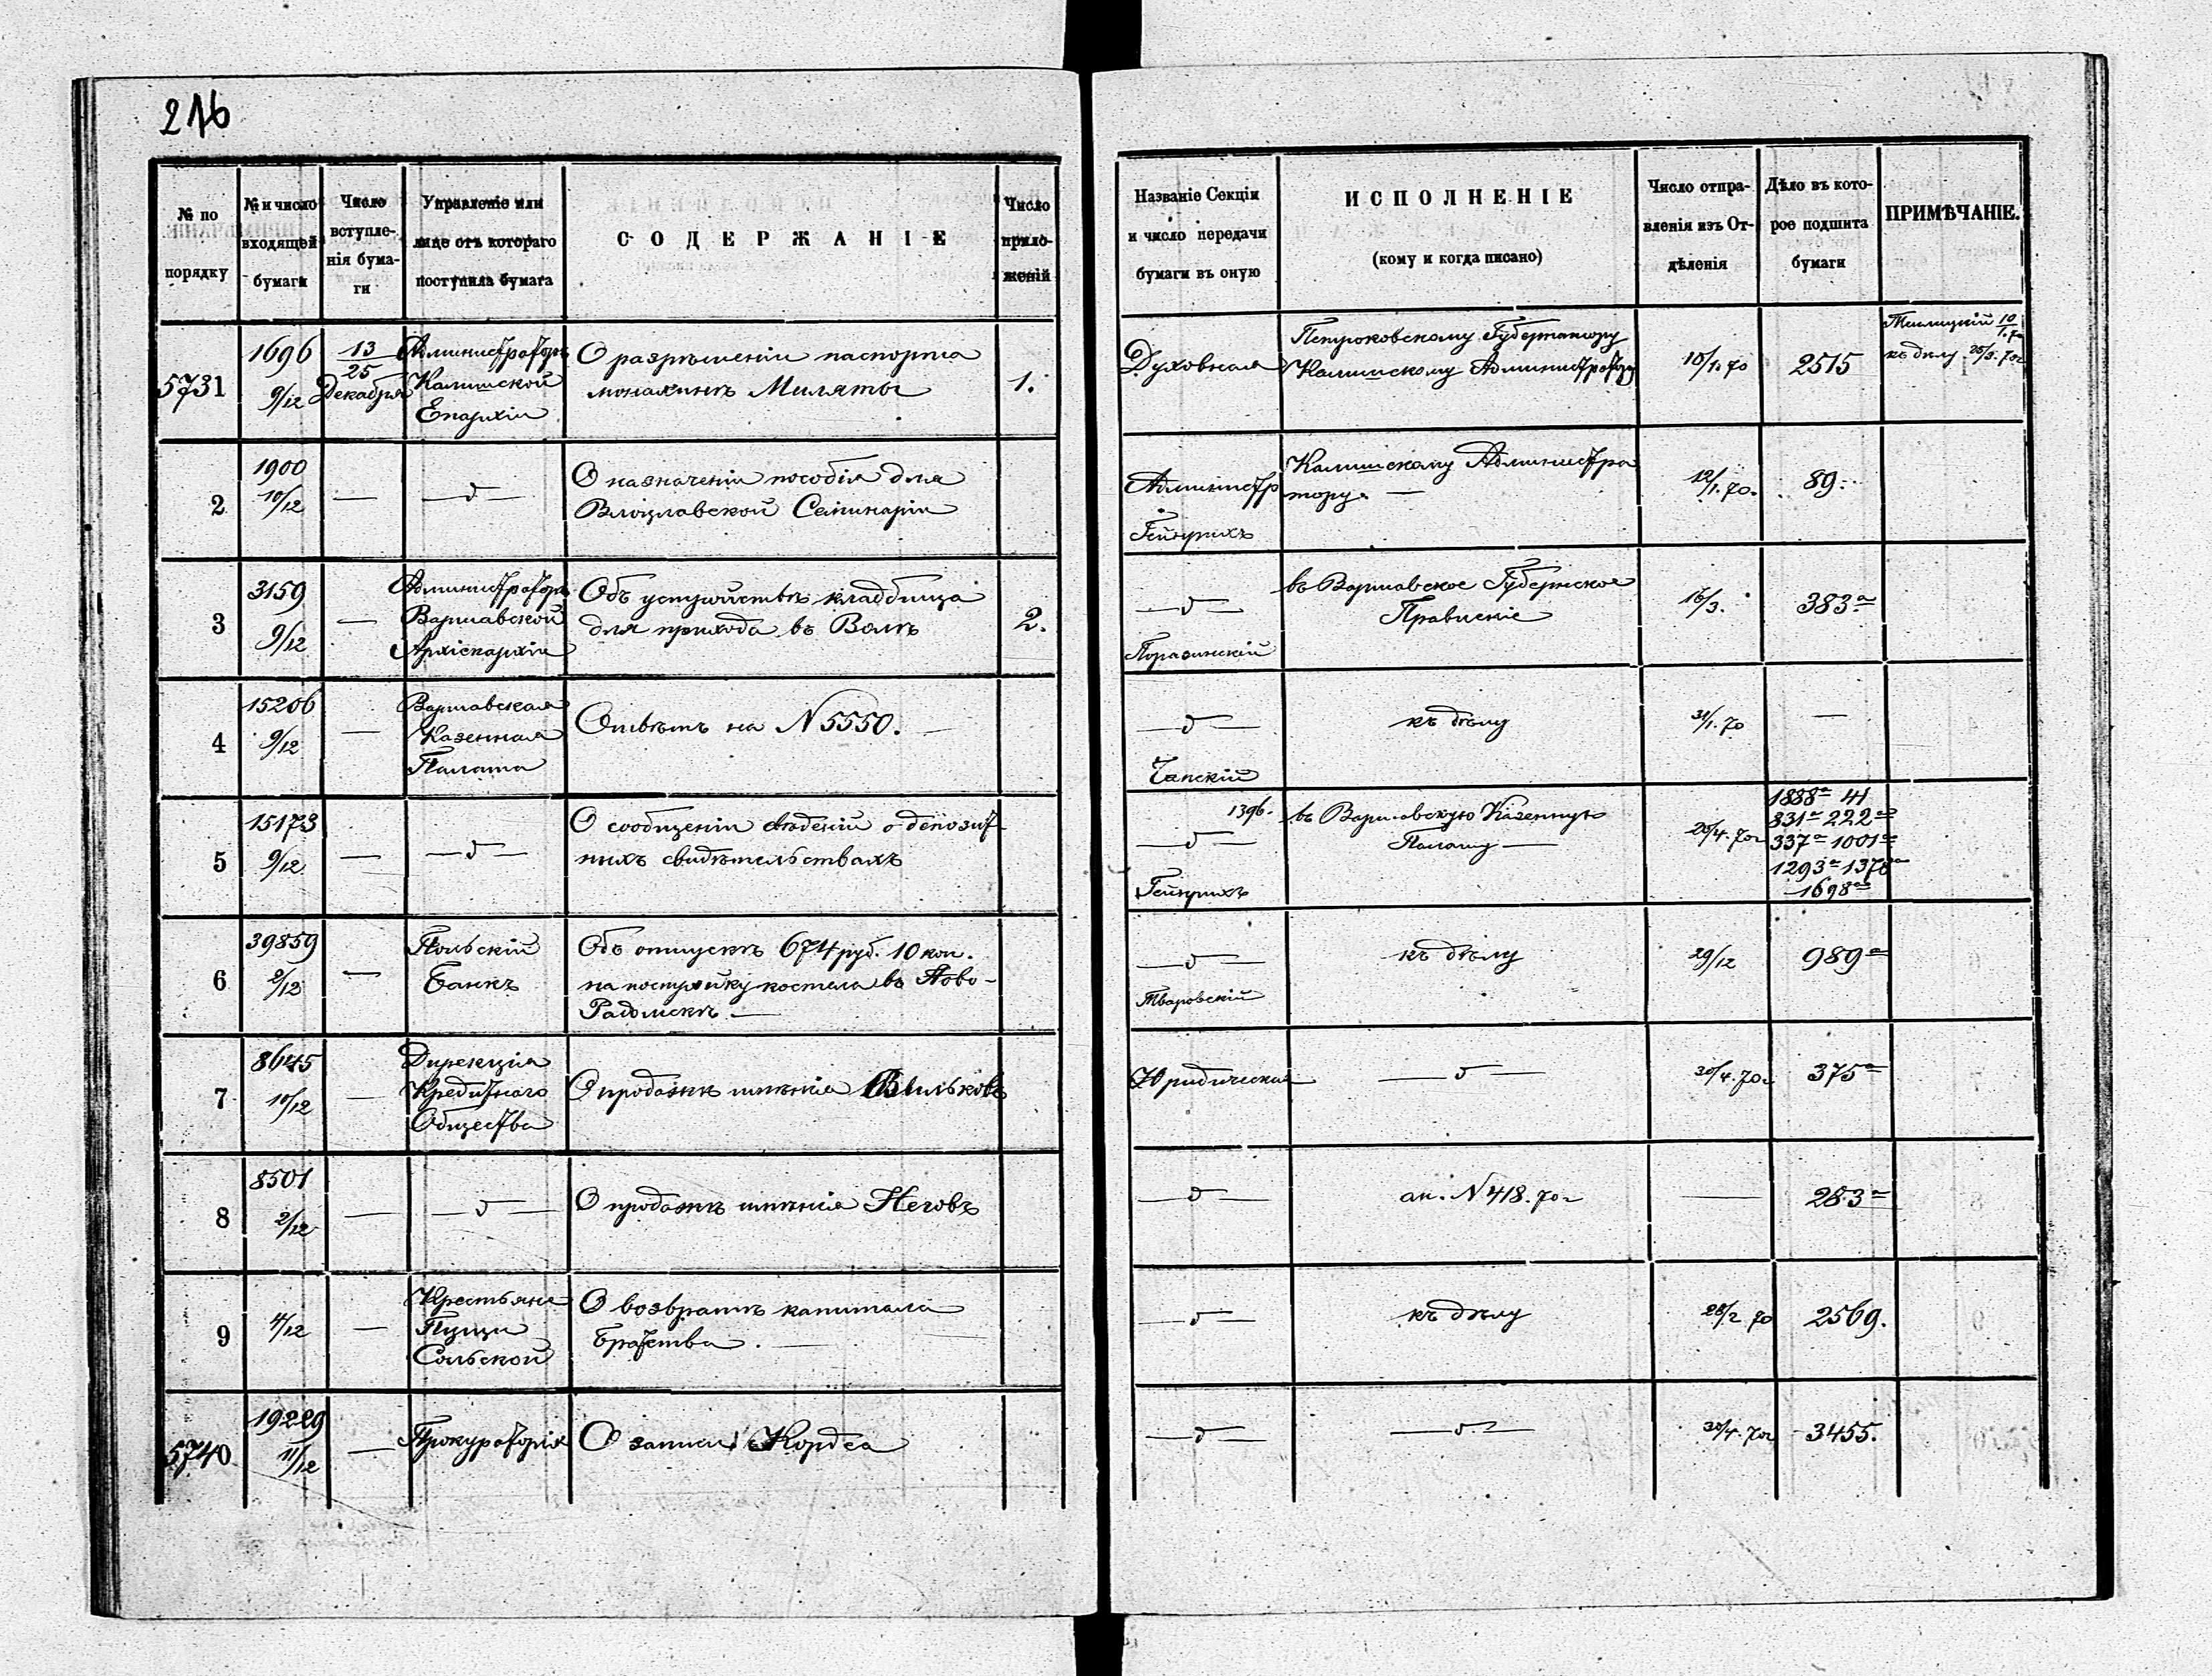 216
№ по порядку
№ и число входящей бумаги
Число вступленія бумаги
Управленіе или лице отъ котораго поступила бумага
СОДЕРЖАНІЕ
Число приложеній
Названіе Секціи и число передачи бумаги въ оную
ИСПОЛНЕНІЕ
(кому и когда писано)
Число отправленія изъ Отдѣленія
Дѣло въ которое подшита бумаги
ПРИМѢЧАНІЕ.
5731
1696
9/12
13/25
Декабря
Администраторъ
Калишской
Епархіи
О разрѣшеніи паспорта
монахинѣ Миляты
1.
Духовная
Петроковскому Губернатору
Калишскому Администратору
10/1.70
2515
10/1.70
къ дѣлу 25/3.70г
2
1900
10/12
— д —
О назначеніи пособія для
Влоцлавской Семинаріи
Администр
Гейнрихъ
Калишскому Администра
тору. —
12/1.70.
89.
3
3159
9/12
—
Администраторъ
Варшавской
Архіепархіи
Объ устройствѣ кладбища
для прихода въ Волѣ
2.
— д —
Поразинскій
въ Варшавское Губернское
Правленіе
16/3.
383а
4
15206
9/12
—
Варшавская
Казенная
Палата
Отвѣтъ на N 5550. —
— д —
Чапскій
къ дѣлу
31/1.70
—
5
15173
9/12
—
— д —
О сообщеніи свѣденій о депозит-
ныхъ свидѣтельствахъ
1396.
— д —
Гейнрихъ
въ Варшавскую Казенную
Палату —
20/4.70г
1888а 41
831а 222а
337а 1001а
1293а 1370а
1698а
6
39859
2/12
—
Польскій
Банкъ
Объ отпускѣ 674 руб. 10 коп.
на постройку костела въ Ново-
Радомскѣ —
— д —
Тваровскій
къ дѣлу
29/12
989а
7
8645
10/12
—
Дирекція
Кредитнаго
Общества
О продажѣ имѣнія Вильковъ
Юридическая
— д —
30/4.70г
375а
8
8501
2/12
—
— д —
О продажѣ имѣнія Неговъ
— д —
ап. N 418.70г
—
283а
9
4/12
—
Крестьяне
Пущи
Сольской
О возвратѣ капитала
Братства. —
— д —
къ дѣлу
28/2 70
2569.
5740
19229
11/12
—
Прокураторія
О записи Кордса
— д —
— д —
30/4.70г
3455.